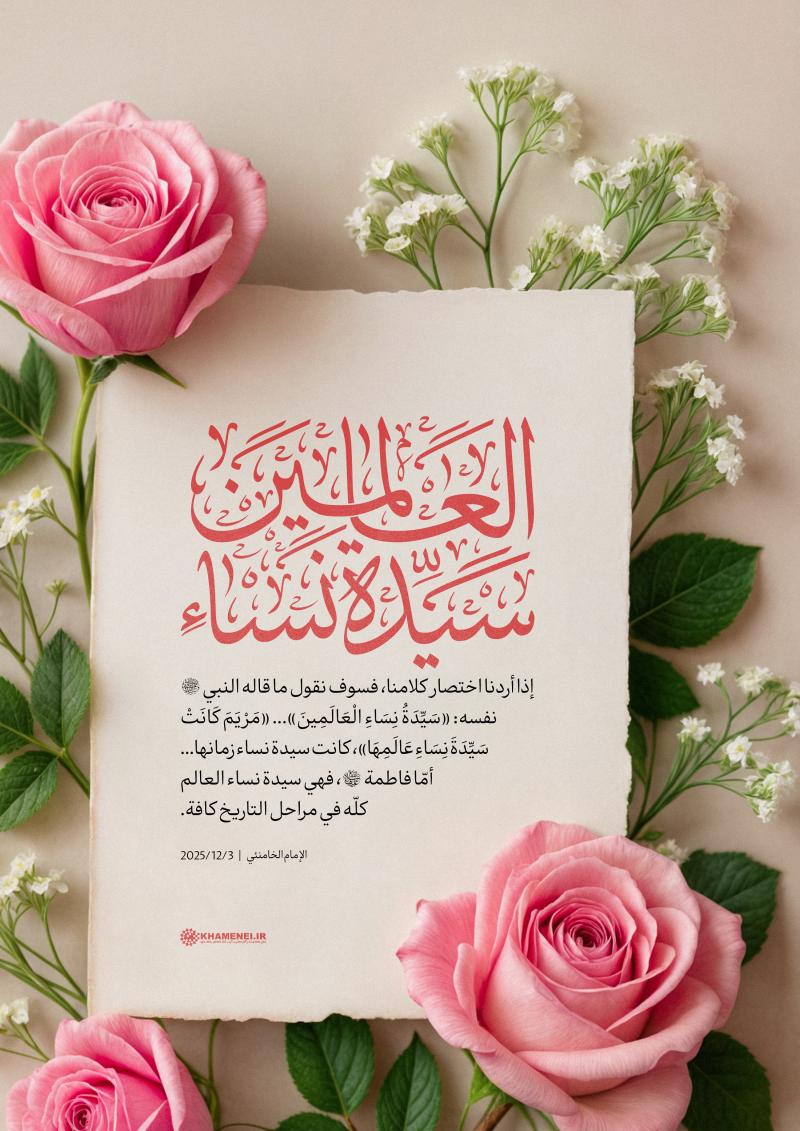 سَيِّدة نساءِ
العَالمين
إذا أردنا اختصار كلامنا، فسوف نقول ما قاله النبي ﷺ
نفسه: «سَيِّدَةُ نِسَاءِ الْعَالَمِينَ»... «مَرْيَمَ كَانَتْ
سَيِّدَةَ نِسَاءِ عَالَمِهَا»، كانت سيدة نساء زمانها...
أمّا فاطمة ، فهي سيدة نساء العالم
كلّه في مراحل التاريخ كافة.
الإمام الخامنئي | 2025/12/3
KHAMENEI.IR